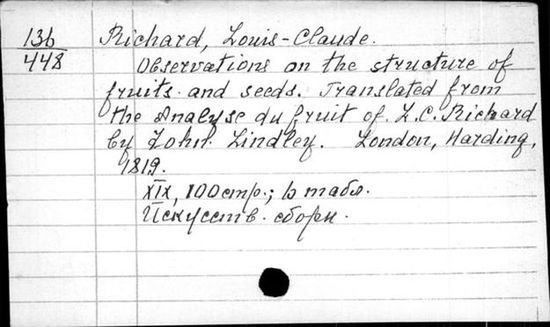 136 Richard, Louis-Claude.
448 Observations on the structure of
fruits and seeds. Translated from
the Analyse du fruit of L.C. Richard
by John Lindley. London, Harding,
1819.
XIX, 100 стр.; 6 табл.
Искусств. сборн.